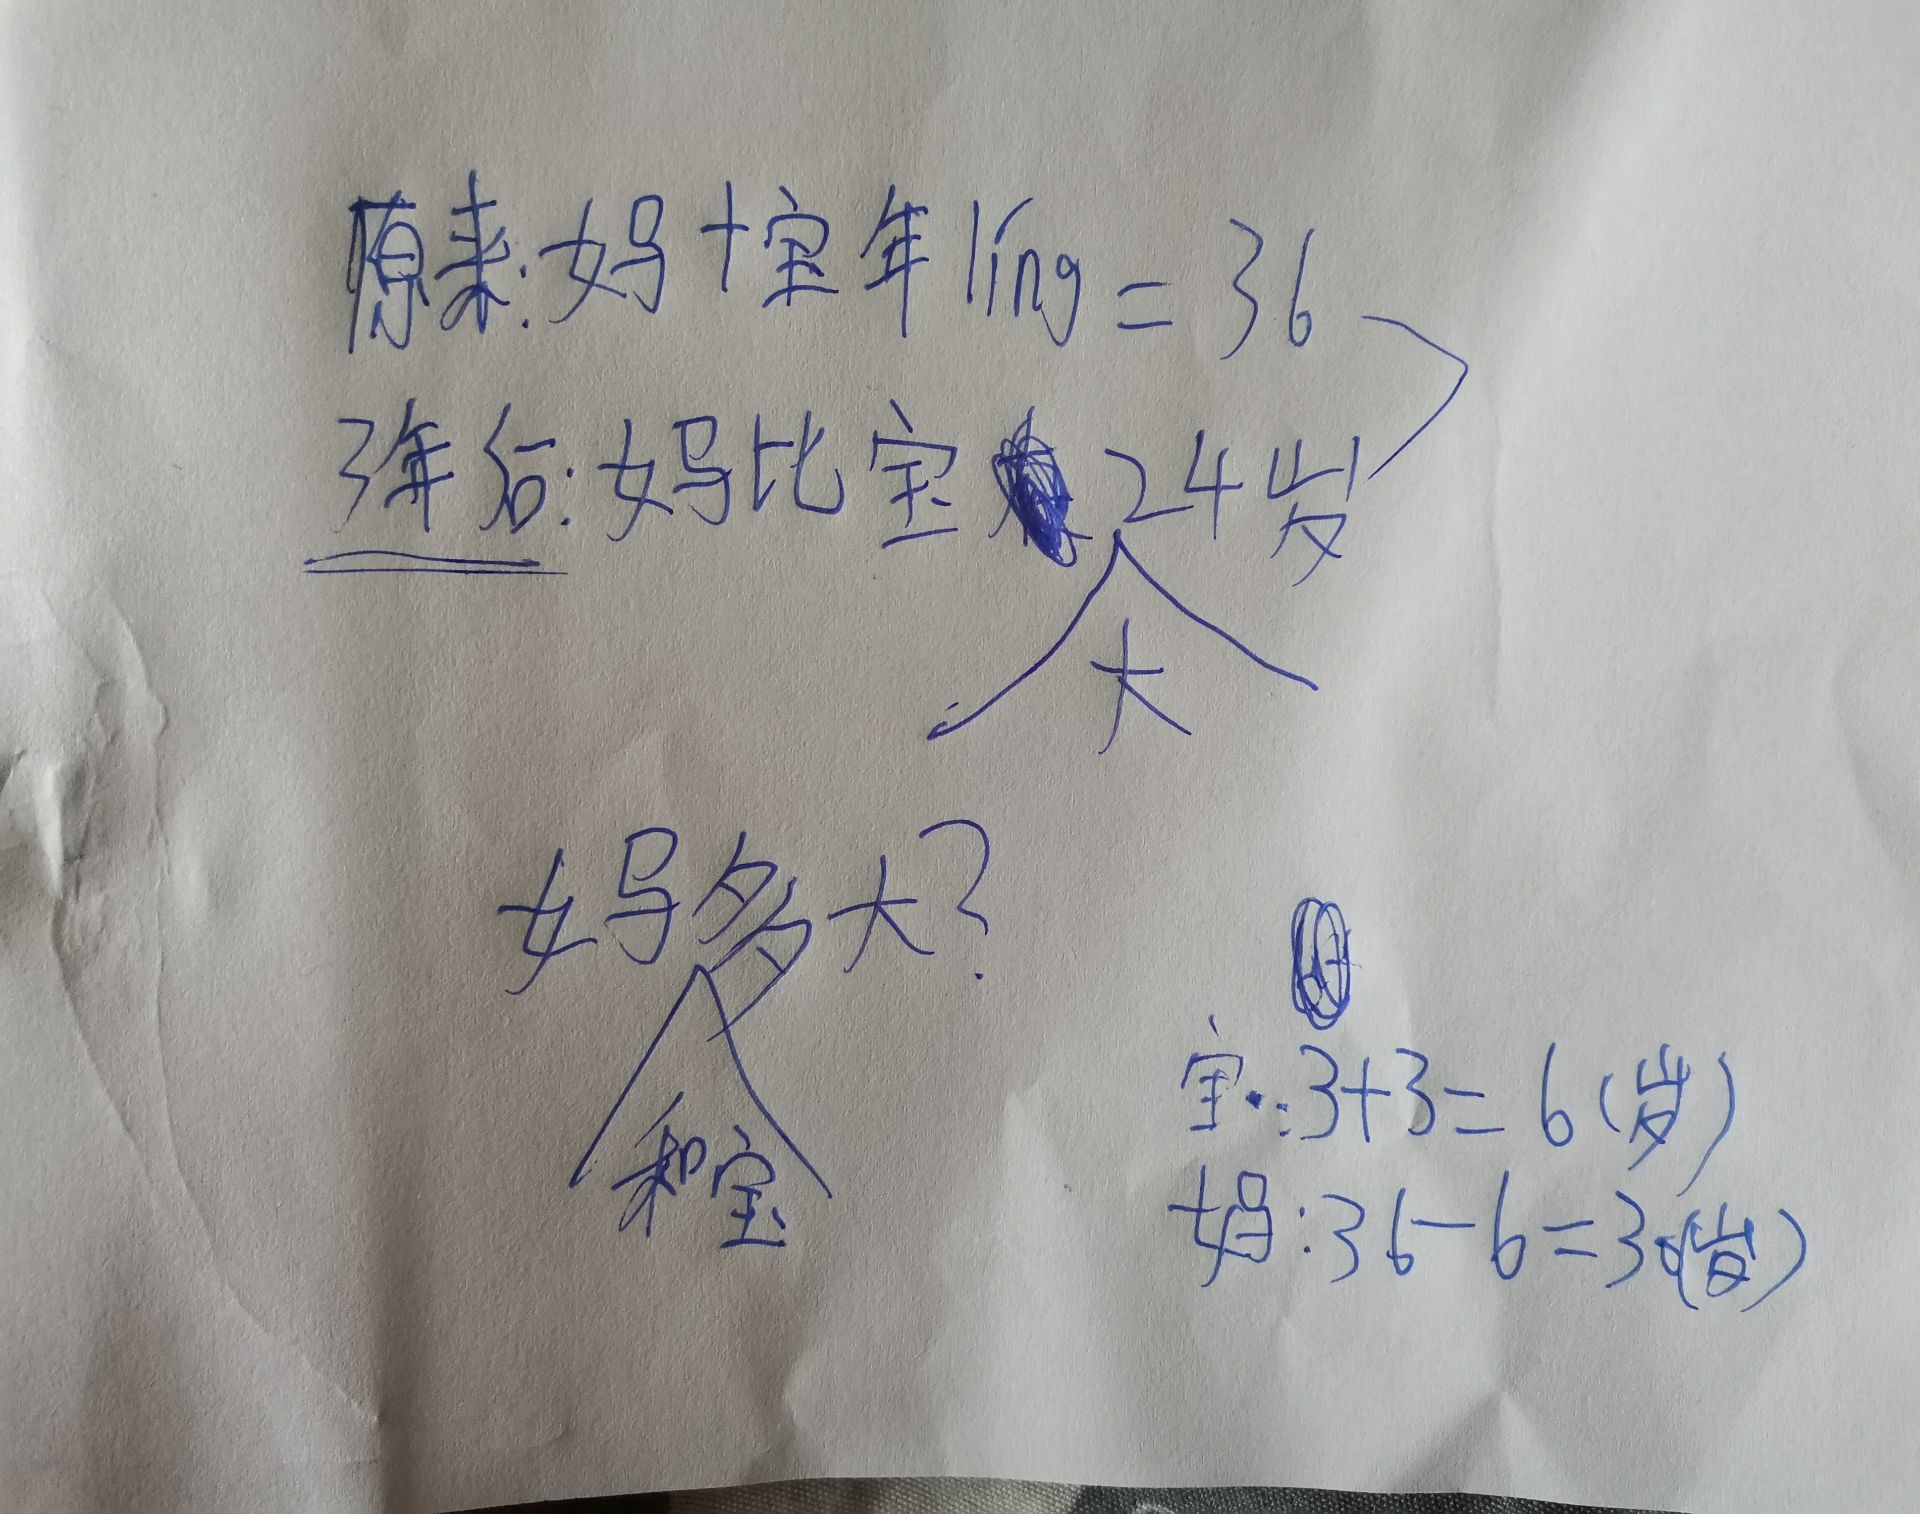 原来:妈+宝年líng=36
3年后:妈比宝24岁
大
妈多大?
和宝
宝:3+3=6(岁)
妈:36-6=30(岁)